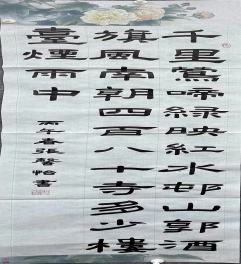 千里鶯啼緑映紅水邨山郭酒
旗風南朝四百八十寺多少樓
臺煙雨中
丙午春張馨怡書